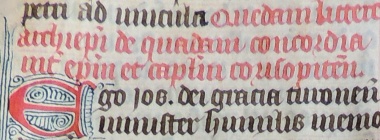 petri ad uincula Quedam littere
archiepi de quadam concordia
int epm et capłm corisopiten̄.
Ego Jos. dei gracia turonen̄
minister humilis memo